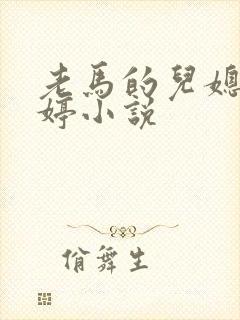 老馬的兒媳
婷小說
佾舞生